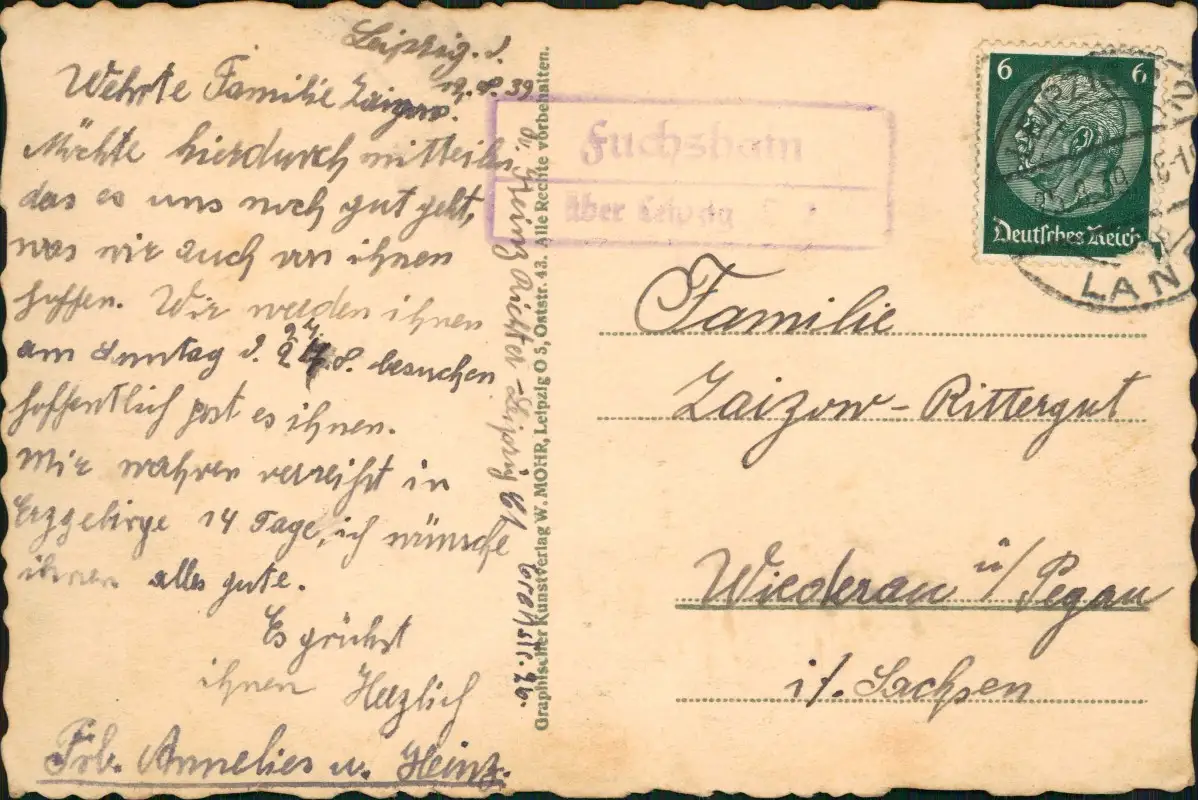 Leipzig. d.
19. 8. 39
Wehrte Familie Zaizow.
Möchte hierdurch mitteilen
das es uns noch gut geht,
was wir auch von ihnen
hoffen. Wir werden ihnen
27.
am Sonntag d. 8. besuchen
hoffentlich past es ihnen.
Wir wahren verreißt in
Erzgebirge 14 Tage, ich wünsche
ihnen alles gute.
Es grüßt
ihnen Herzlich
Frl. Annelies u. Heinz.
Heinz Richter - Leipzig
Graphischer Kunstverlag W. MOHR, Leipzig O 5, Oststr. 43. Alle Rechte vorbehalten.
Fuchshain
über Leipzig
6 6
Deutsches Reich
LAND
Familie
Zaizow - Rittergut
Wiederau ü/ Pegau
i/. Sachsen